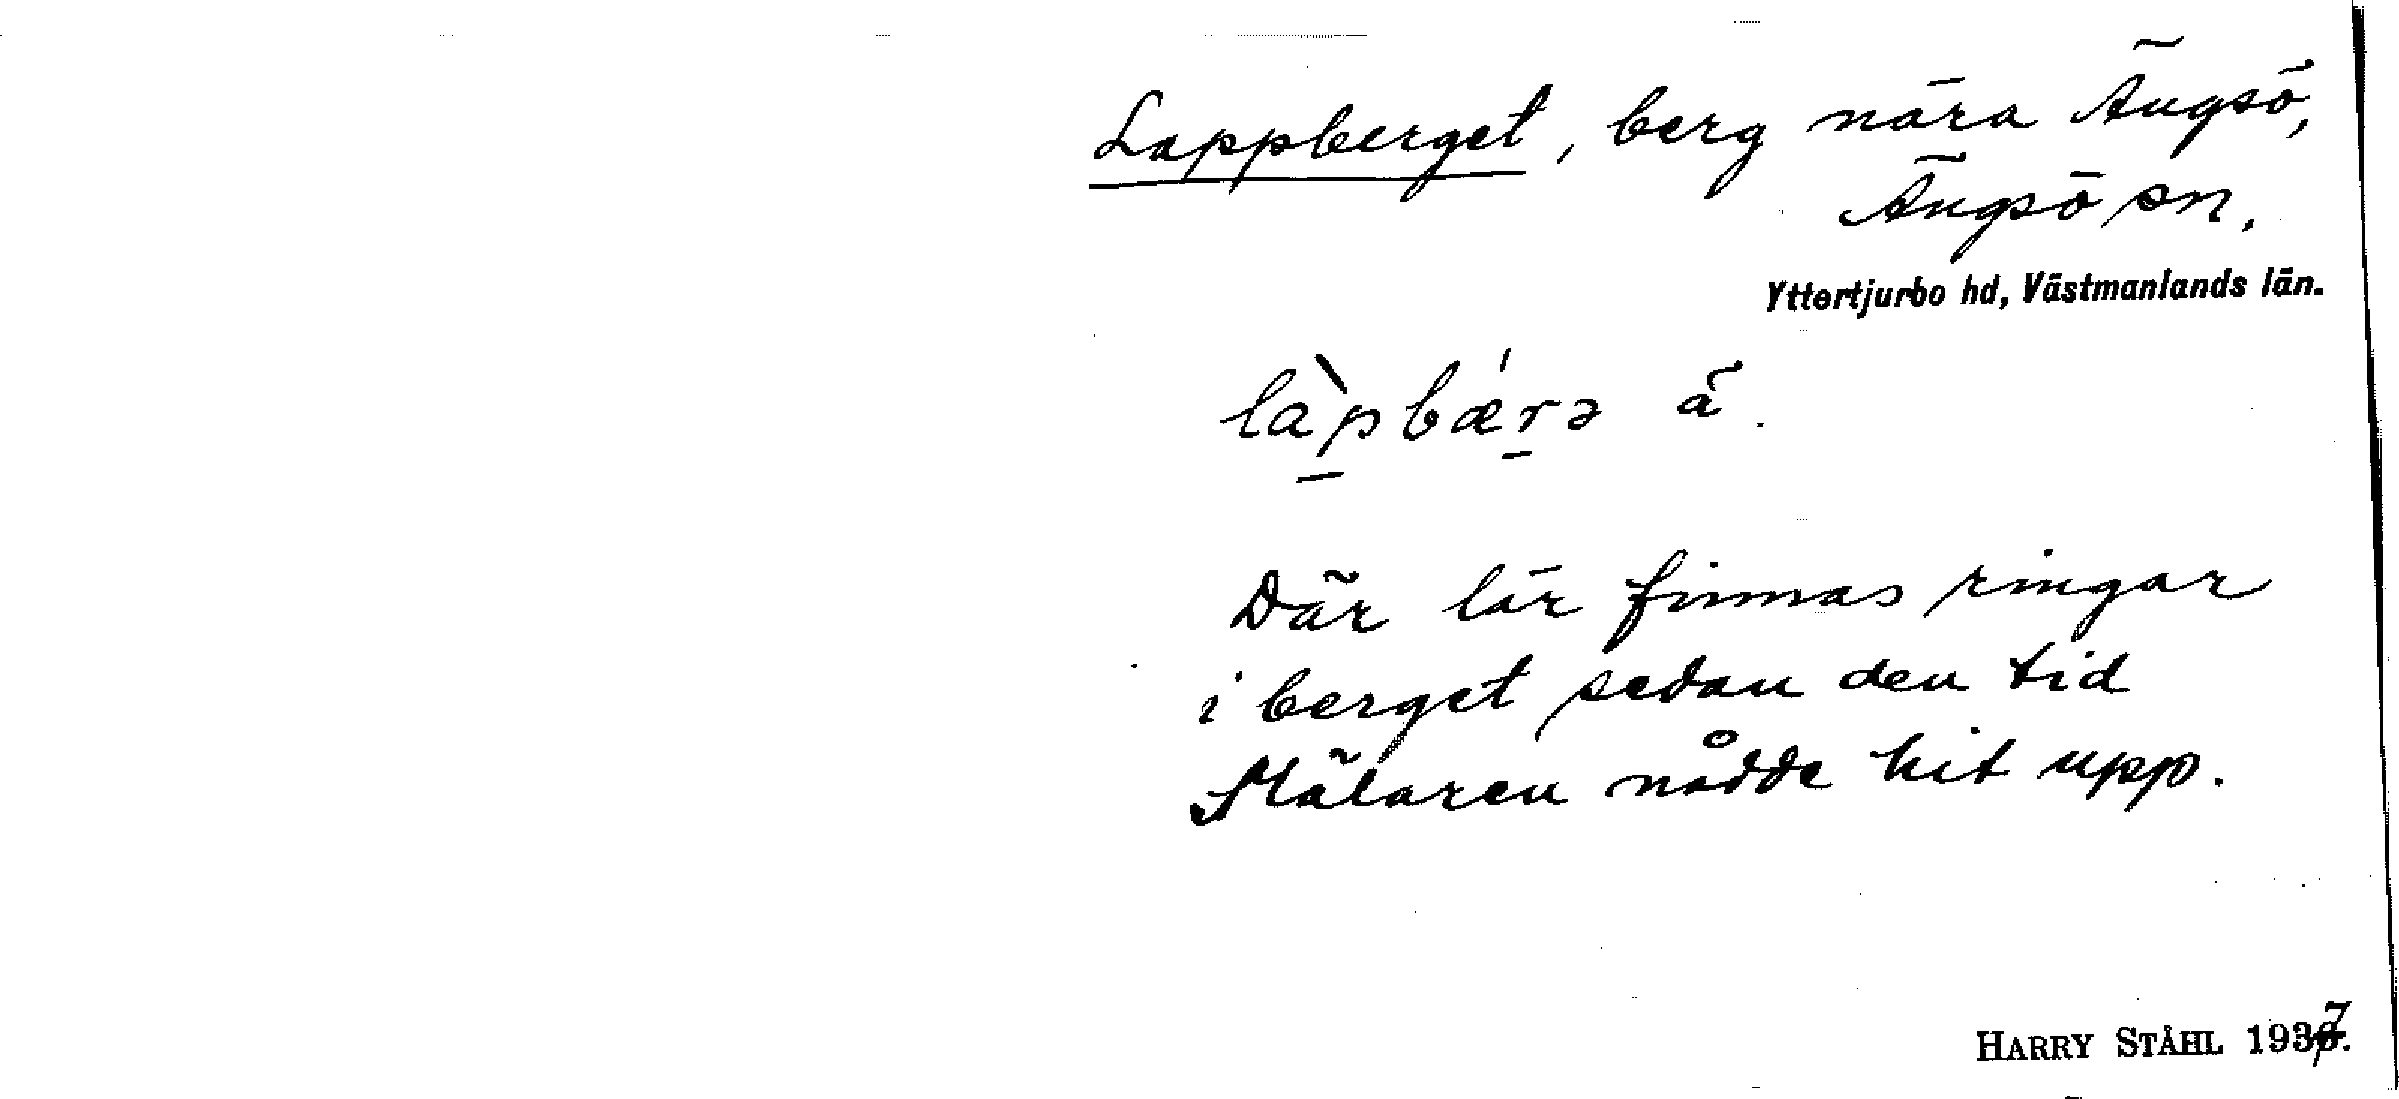 Lappberget, berg nära Ängsö,
Ängsö sn.
Yttertjurbo hd, Västmanlands län.
làp̲bǽr̲ə ä.
Där lär finnas ringar
i berget sedan den tid
Mälaren nådde hit upp.
HARRY STÅHL 1937.